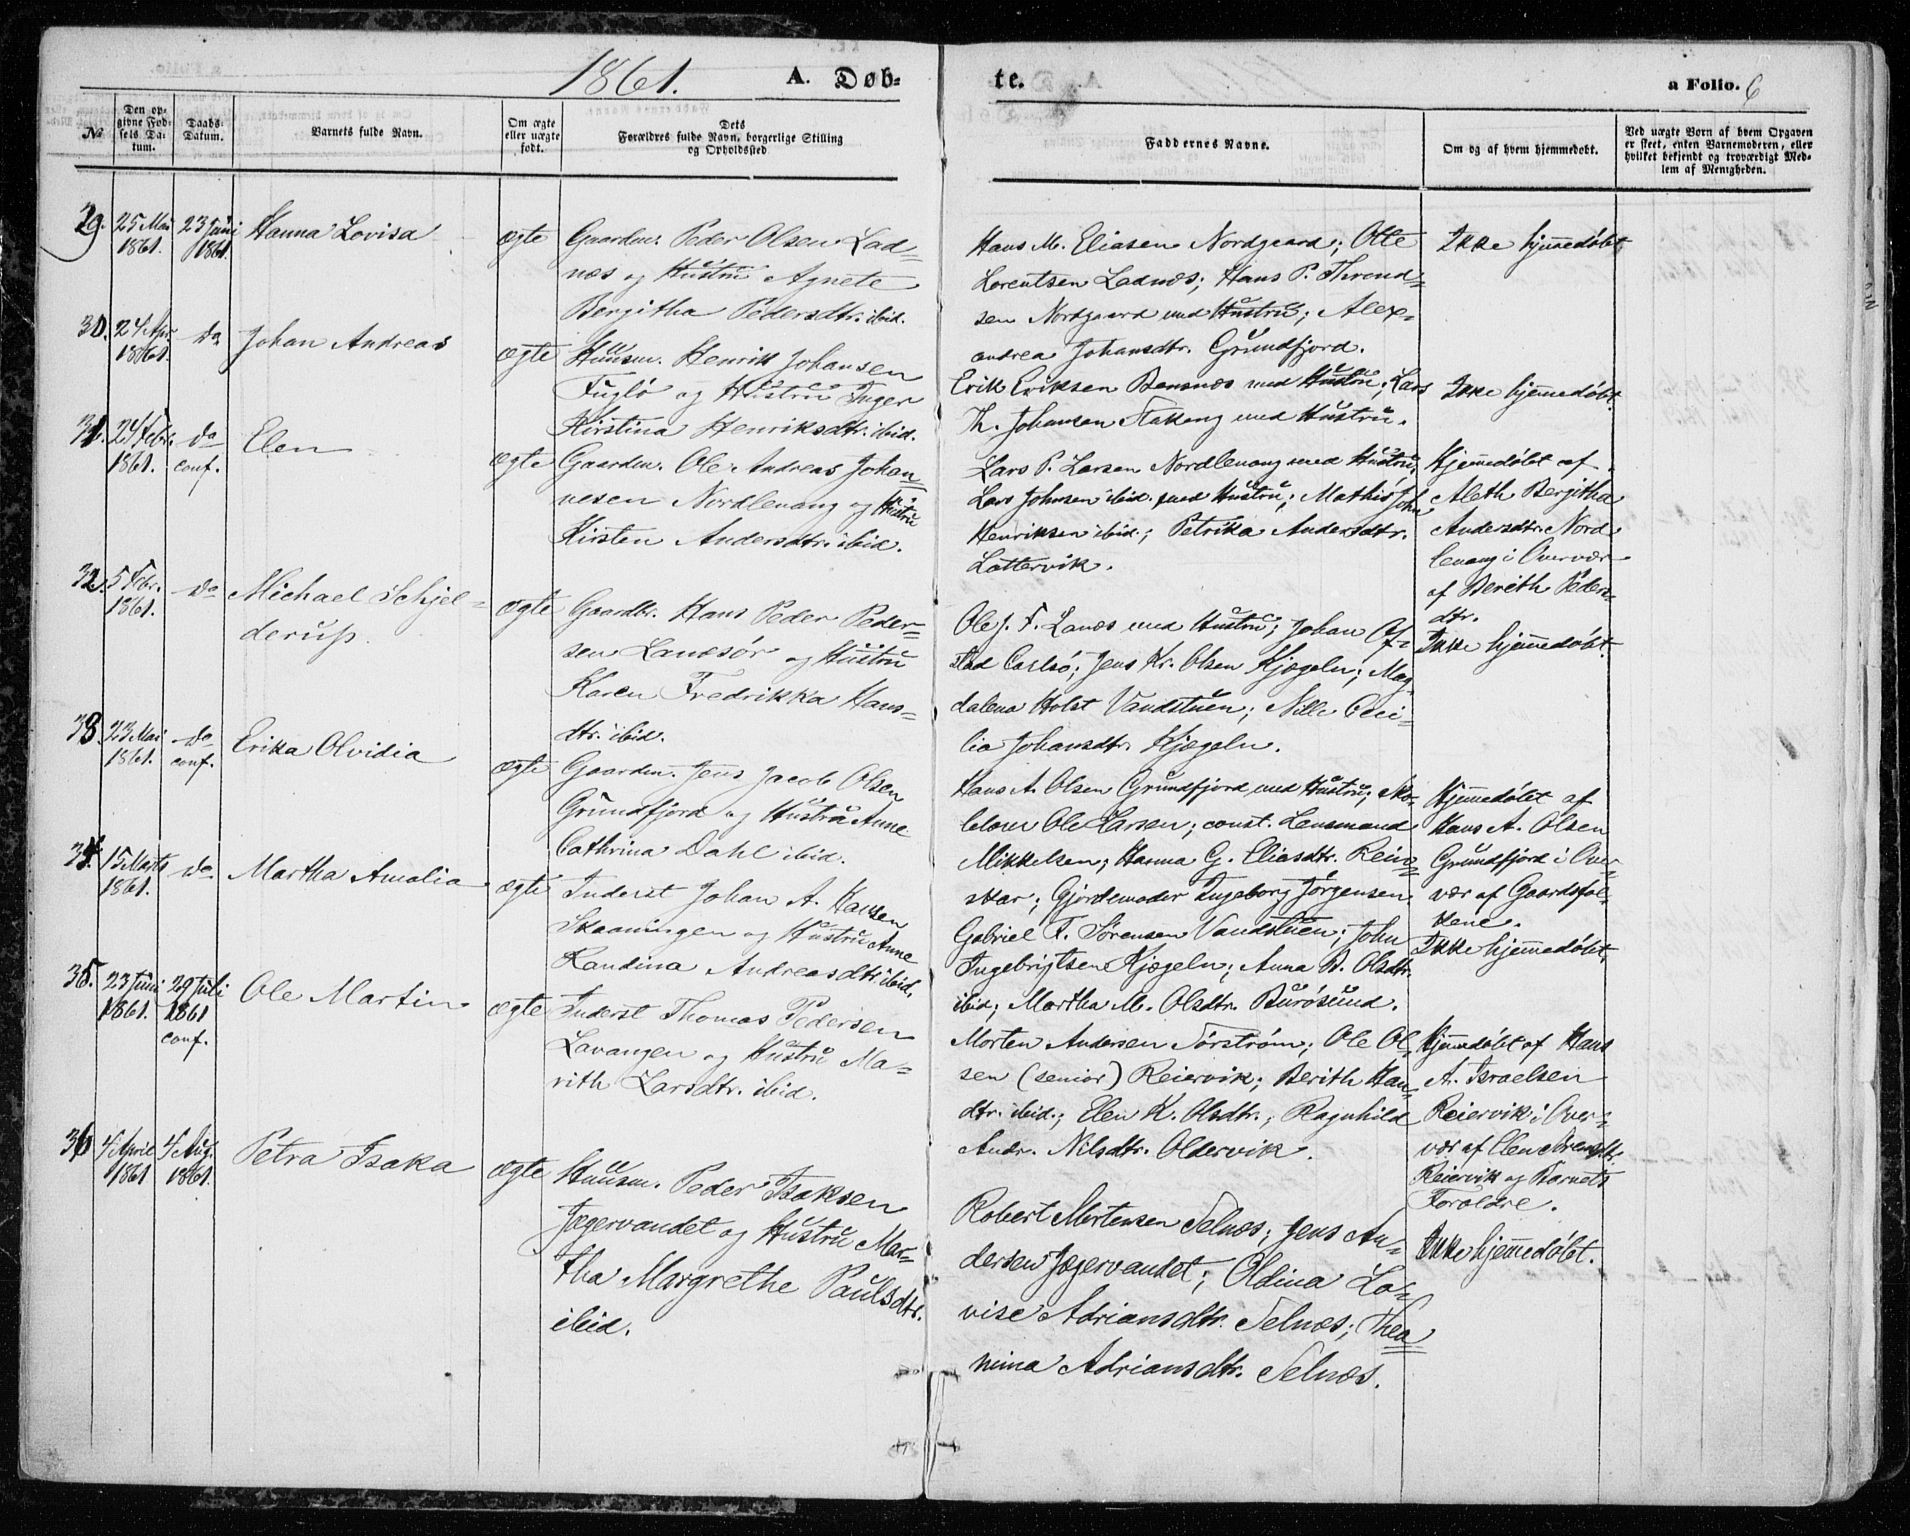 1861. A. Døb-
te. a Folio. 6
No
Den op-
givne Fød-
sels Da-
tum.
Daabs-
Datum.
Barnets fulde Navn.
Om ægte
eller uægte
født.
Dets
Forældres fulde Navn, borgerlige Stilling
og Opholdssted
Faddernes Navne.
Om og af hvem hjemmedøbt.
Ved uægte Børn af hvem Opgaven
er skeet, enten Barnemoderen, eller
hvilket bekjendt og troværdigt Med-
lem af Menigheden.
29. 25 Mai
1861.
23 Juni
1861.
Hanna Lovisa
ægte
Gaardm. Peder Olsen Lad-
næs og Hustru Agnete
Bergitha Pedersdtr. ibid.
Hans M. Eliasen Nordgaard; Otte
Lorentsen Ladnæs; Hans P. Thrond-
sen Nordgaard med Hustru; Alex-
andrea Johansdtr. Grundfjord.
Ikke hjemmedøbt
30. 24 Apr.
1861.
do
Johan Andreas
ægte
Huusm. Henrik Johansen
Fuglø og Hustru Inger
Kirstina Henriksdtr. ibid.
Erik Eriksen Bensnæs med Hustru; Lars
Th. Johansen Stakeng med Hustru.
Ikke hjemmedøbt.
31. 24 Febr.
1861.
do
conf.
Elen
ægte
Gaardm. Ole Andreas Johan
nesen Nordlenang og Hustru
Kirsten Andersdtr. ibid.
Lars P. Larsen Nordlenang med Hustru;
Lars Johnsen ibid. med Hustru; Mathis John
Henriksen ibid.; Petrika Andersdtr.
Lattervik.
Hjemmedøbt af
Aleth Bergitha
Andersdtr. Nord
lenang i Overvær
af Berith Peders-
dtr.
32. 5 Febr.
1861.
do
Michael Schjel-
derup.
ægte
Gaardbr. Hans Peder Peder-
sen Lanesør og Hustru
Karen Fredrikka Hans-
dtr. ibid.
Ole J. F. Lanes med Hustru; Johan Of-
stad Carlsø; Jens Kr. Olsen Kjægeln; Mag-
dalena Holst Vandstuen; Nille Ceci-
lia Johansdtr. Kjægeln.
Ikke hjemmedøbt.
33. 23 Mai
1861.
do
conf.
Erika Olvidia
ægte
Gaardm. Jens Jacob Olsen
Grundfjord og Hustru Anne
Cathrina Dahl ibid.
Hans A. Olsen Grundfjord med Hustru; Sko-
lelærer Ole Larsen; const. Lensmand
Mikkelsen; Hanna G. Eliasdtr. Rein-
skar; Gjordemoder Ingeborg Jørgensen
Hjemmedøbt af
Hans A. Olsen
Grundfjord i Over-
vær af Gaardsfol-
kene.
34. 15 Marts
1861.
do
Martha Amalia
ægte
Inderst Johan A. Hansen
Skaaningen og Hustru Anne
Randina Andreasdtr. ibid.
Gabriel F. Sørensen Vandstuen; John
Ingebrigtsen Kjægeln; Anna B. Olsdtr.
ibid; Martha M. Olsdtr. Burøsund.
Ikke hjemmedøbt.
35. 23 Juni
1861.
29 Juli
1861
conf.
Ole Martin
ægte
Inderst Thomas Pedersen
Lavangen og Hustru Ma-
rith Larsdtr. ibid.
Morten Andersen Sørstrøm; Ole Ol-
sen (senior) Reiervik; Berith Han-
dtr. ibid.; Elen K. Olsdtr.; Ragnhild
Andr. Nilsdtr. Oldervik.
Hjemmedøbt af Hans
A. Israelsen
Reiervik i Over-
vær af Elen Arensdtr.
Reiervik og Barnets
Forældre.
36 4 April
1861
4 Aug.
1861.
Petra Isaka
ægte
Huusm. Peder Isaksen
Jægervandet og Hustru Mar-
tha Margrethe Paulsdtr.
ibid.
Robert Mortensen Selnæs; Jens An-
dersen Jægervandet; Oldina Lo-
vise Adriansdtr. Selnæs; Thea
nina Adriansdtr. Selnæs.
Ikke hjemmedøbt.